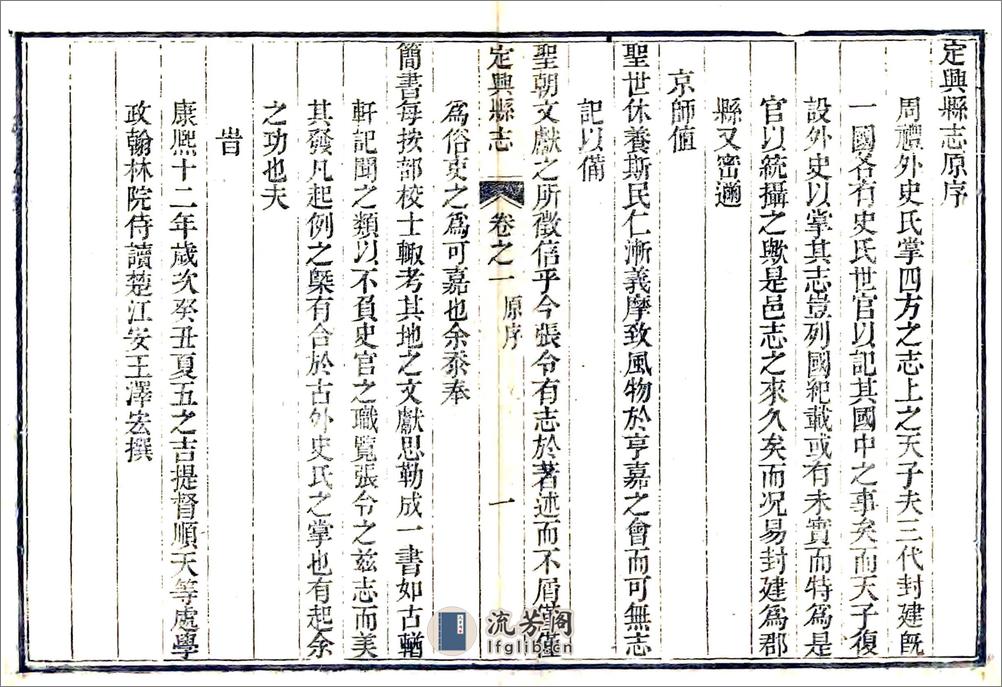 定興縣志原序
周禮外史氏掌四方之志上之天子夫三代封建旣
一國各有史氏世官以記其國中之事矣而天子復
設外史以掌其志豈列國紀載或有未實而特爲是
官以統攝之歟是邑志之來久矣而况易封建爲郡
縣又密邇
京師值
聖世休養斯民仁漸義摩致風物於亨嘉之會而可無志
記以備
聖朝文獻之所徵信乎今張令有志於著述而不屑僅僅
定興縣志 卷之一 原序 一
爲俗吏之爲可嘉也余忝奉
簡書每按部校士輙考其地之文獻思勒成一書如古輶
軒記聞之類以不負史官之職覽張令之茲志而美
其發凡起例之槩有合於古外史氏之掌也有起余
之功也夫
旹
康熙十二年歲次癸丑夏五之吉提督順天等處學
政翰林院侍讀楚江安王澤宏撰
流芳阁
lfglib.cn